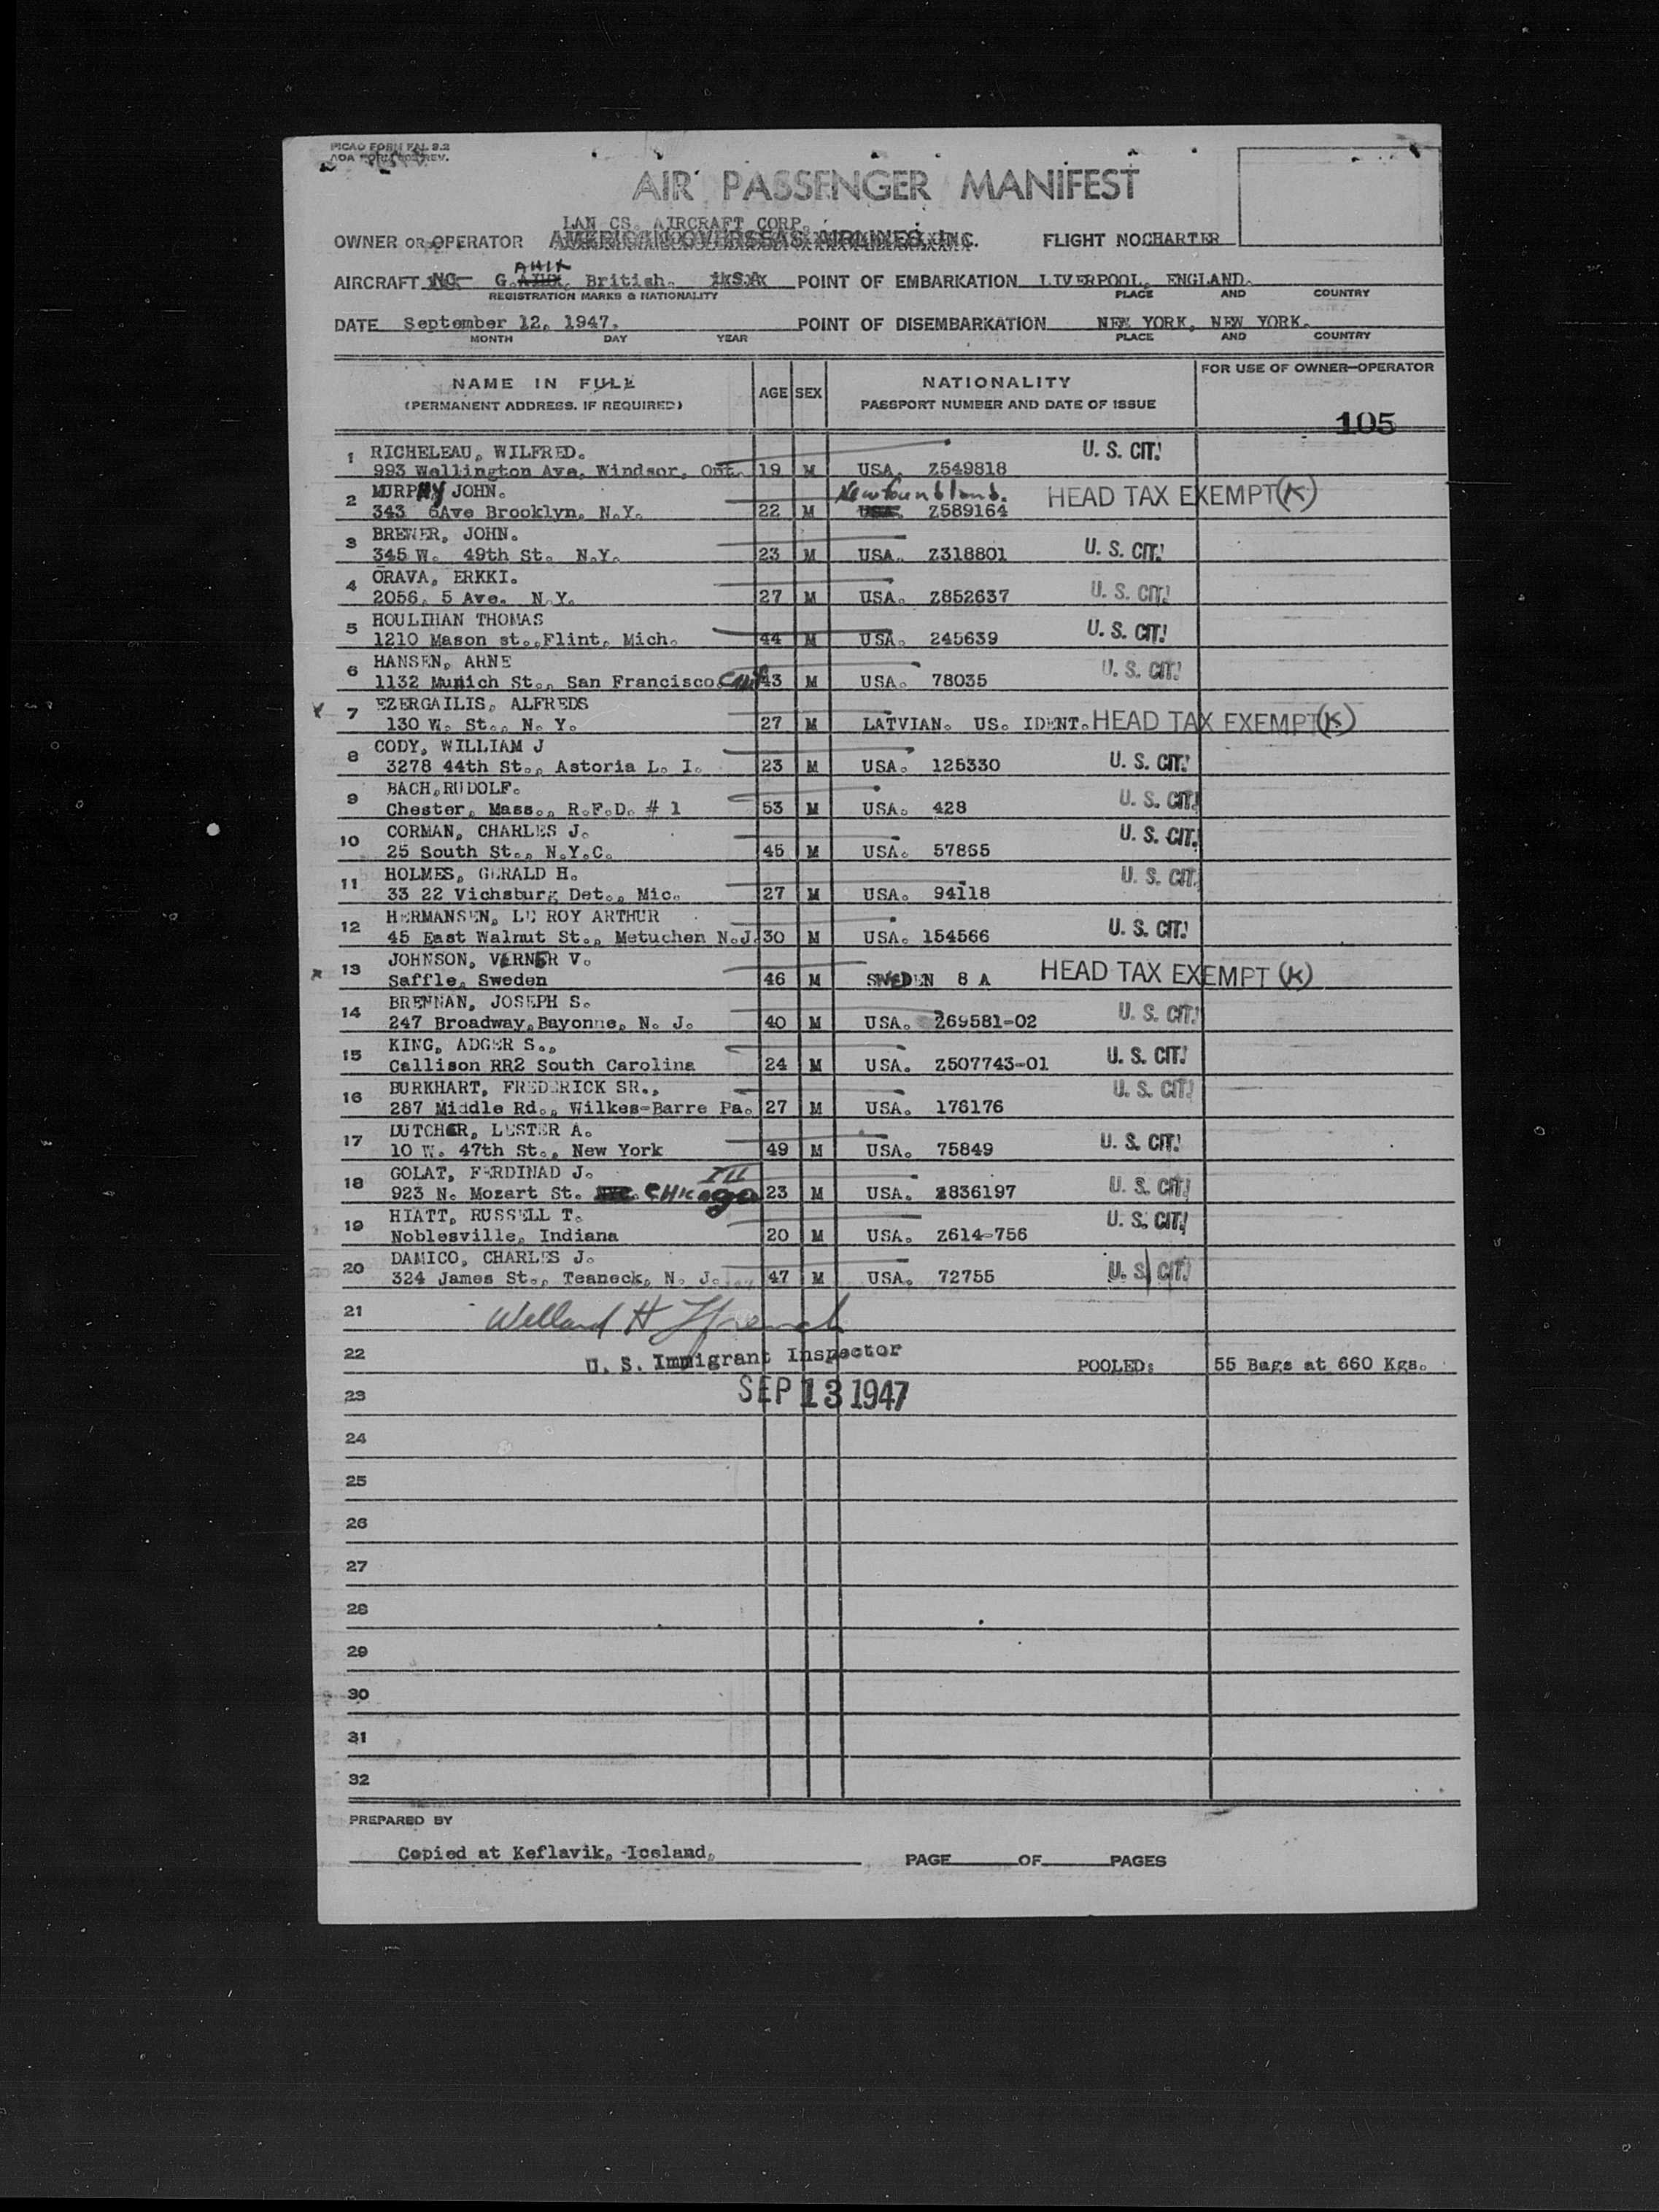 PICAO FORM FAL 3.2
AIR PASSENGER MANIFEST
LAN CS. AIRCRAFT CORP.
OWNER OR OPERATOR AMERICAN OVERSEAS AIRLINES, INC. FLIGHT NO CHARTER
AHIK
AIRCRAFT NC G. British. POINT OF EMBARKATION LIVERPOOL, ENGLAND.
REGISTRATION MARKS & NATIONALITY PLACE AND COUNTRY
DATE September 12, 1947. POINT OF DISEMBARKATION NEW YORK, NEW YORK.
MONTH DAY YEAR PLACE AND COUNTRY
NAME IN FULL AGE SEX NATIONALITY FOR USE OF OWNER-OPERATOR
(PERMANENT ADDRESS, IF REQUIRED) PASSPORT NUMBER AND DATE OF ISSUE
105
1 RICHELEAU, WILFRED. U. S. CIT.
993 Wellington Ave, Windsor, Ont. 19 M USA. Z549818
2 MURPHY JOHN. Newfoundland. HEAD TAX EXEMPT (K)
343 6Ave Brooklyn, N.Y. 22 M Z589164
3 BREWER, JOHN. U. S. CIT.
345 W. 49th St. N.Y. 23 M USA. Z318801
4 ORAVA, ERKKI. U. S. CIT.
2056, 5 Ave. N.Y. 27 M USA. Z852637
5 HOULIHAN THOMAS U. S. CIT.
1210 Mason st., Flint, Mich. 44 M USA. 245639
6 HANSEN, ARNE U. S. CIT.
1132 Munich St., San Francisco Calif 43 M USA. 78035
7 EZERGAILIS, ALFREDS
130 W. St., N. Y. 27 M LATVIAN. US. IDENT. HEAD TAX EXEMPT (K)
8 CODY, WILLIAM J
3278 44th St., Astoria L. I. 23 M USA. 125330 U. S. CIT.
9 BACH, RUDOLF. U. S. CIT.
Chester, Mass., R.F.D. # 1 53 M USA. 428
10 CORMAN, CHARLES J. U. S. CIT.
25 South St., N.Y.C. 45 M USA. 57865
11 HOLMES, GERALD H. U. S. CIT.
33 22 Vichsburg Det., Mic. 27 M USA. 94118
12 HERMANSEN, LE ROY ARTHUR U. S. CIT.
45 East Walnut St., Metuchen N.J. 30 M USA. 154566
13 JOHNSON, VERNER V. HEAD TAX EXEMPT (K)
Saffle, Sweden 46 M SWEDEN 8 A
14 BRENNAN, JOSEPH S. U. S. CIT.
247 Broadway, Bayonne, N. J. 40 M USA. Z69581-02
15 KING, ADGER S., U. S. CIT.
Callison RR2 South Carolina 24 M USA. Z507743-01
16 BURKHART, FREDERICK SR., U. S. CIT.
287 Middle Rd., Wilkes-Barre Pa. 27 M USA. 176176
17 DUTCHER, LESTER A. U. S. CIT.
10 W. 47th St., New York 49 M USA. 75849
18 GOLAT, FERDINAD J. Ill
923 N. Mozart St. CHICAgo 23 M USA. Z836197 U. S. CIT.
19 HIATT, RUSSELL T. U. S. CIT.
Noblesville, Indiana 20 M USA. Z614-756
20 DAMICO, CHARLES J. U. S. CIT.
324 James St., Teaneck, N. J. 47 M USA. 72755
21
22 U. S. Immigrant Inspector POOLED: 55 Bags at 660 Kgs.
23 SEP 13 1947
24
25
26
27
28
29
30
31
32
PREPARED BY
Copied at Keflavik, Iceland, PAGE OF PAGES